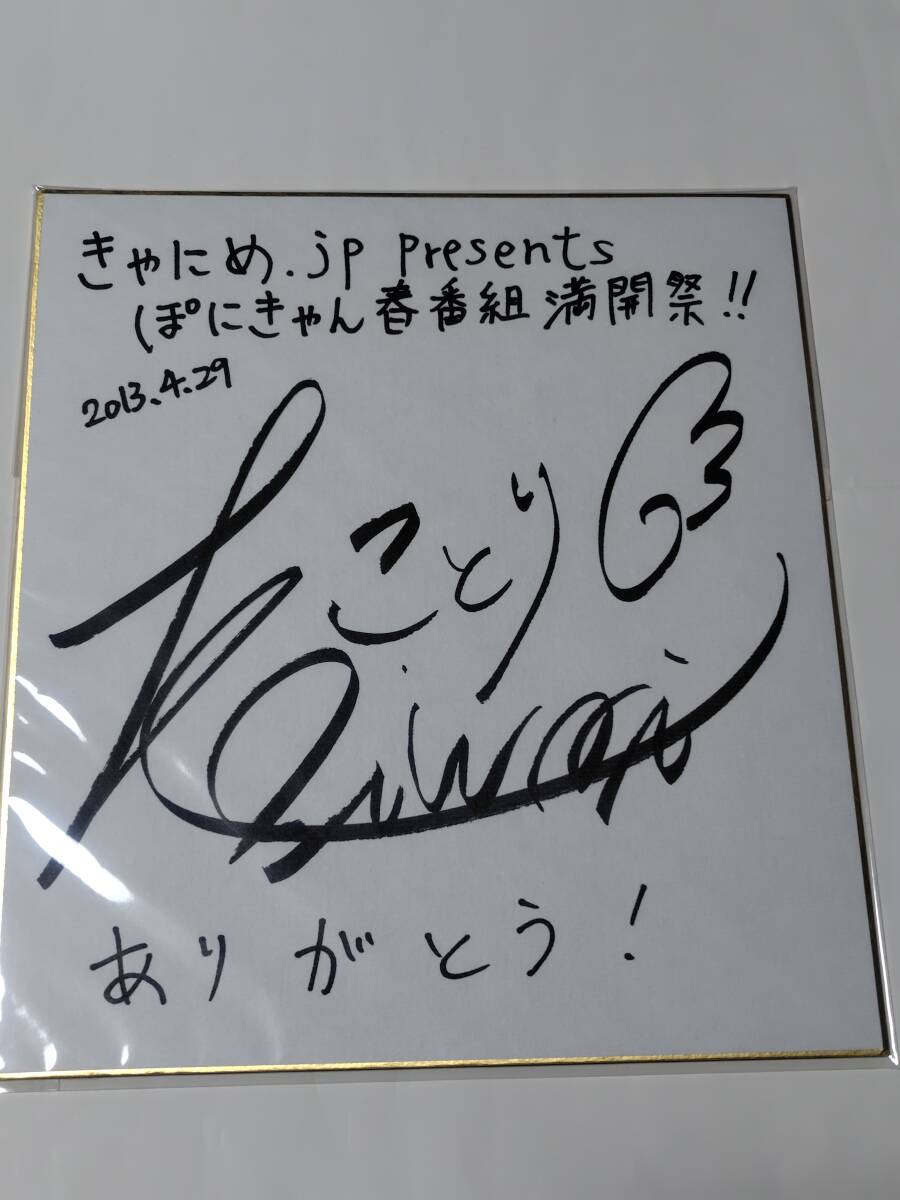 きゃにめ.jp presents
ぽにきゃん春番組満開祭!!
2013.4.29
ことり
Koiwai
ありがとう!